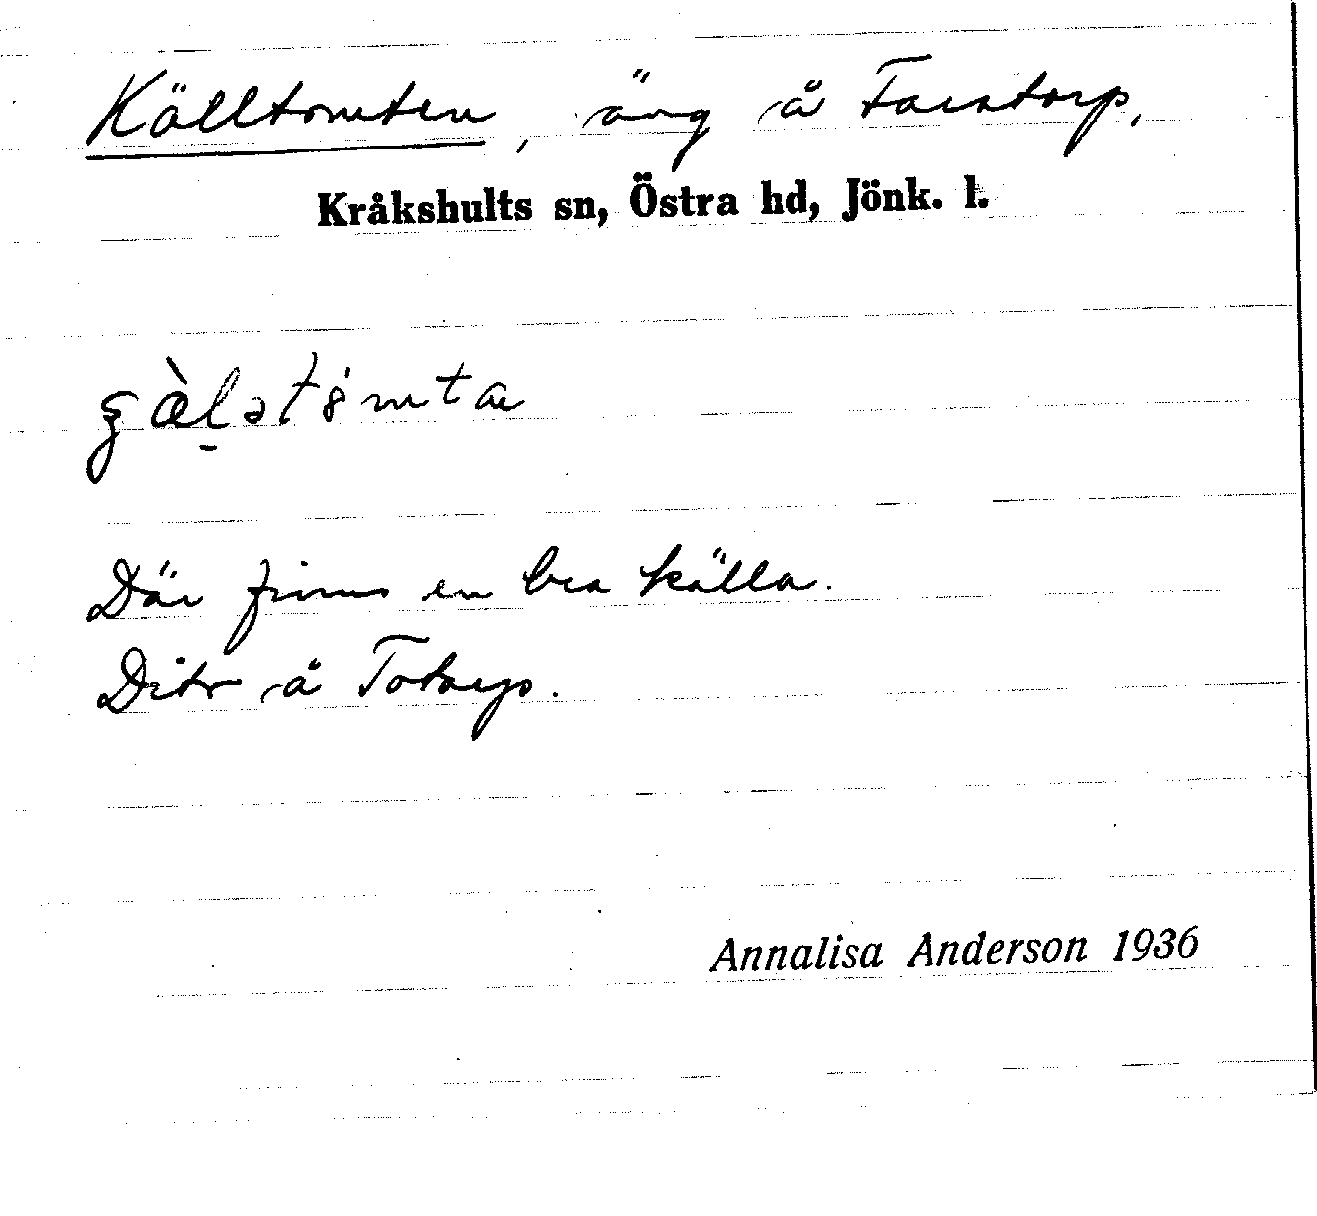 Källtomten, äng å Farstorp,
Kråkshults sn, Östra hd, Jönk. l.
Där finns en bra källa.
Dito å Totarp.
Annalisa Anderson 1936